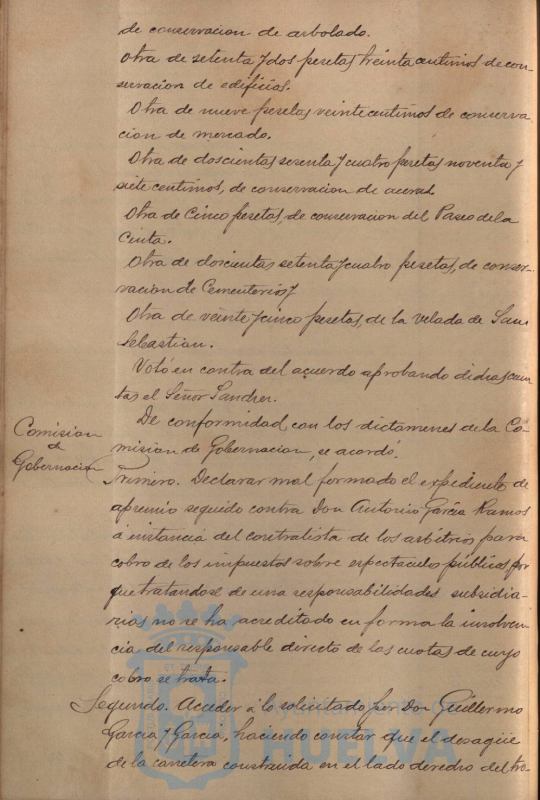 de conservacion de arbolado.
Otra de setenta y dos pesetas treinta centimos de con-
servacion de edificios.
Otra de nueve pesetas veinte centimos de conserva
cion de mercado.
Otra de doscientas sesenta y cuatro pesetas noventa y
siete centimos, de conservacion de aceras.
Otra de Cinco pesetas, de conservacion del Paseo de la
Cinta.
Otra de doscientas setenta y cuatro pesetas, de conser-
vacion de Cementerios y
Otra de veinte y cinco pesetas, de la velada de San
Sebastian.
Votó en contra del acuerdo aprobando dichas cuen
tas el Señor Sanchez.
De conformidad con los dictámenes de la Co-
mision de Gobernacion, se acordó.
Comision
de
Gobernacion
Primero. Declarar mal formado el expediente de
apremio seguido contra Don Antonio Garcia Ramos
á instancia del contratista de los arbitrios para
cobro de los impuestos sobre espectaculos públicos por
que tratandose de una responsabilidades subsidia-
rias no se ha acreditado en forma la insolven
cia del responsable directo de las cuotas de cuyo
cobro se trata.
Segundo. Acceder á lo solicitado por Don Guillermo
Garcia y Garcia, haciendo constar que el desagüe
de la carretera construida en el lado derecho del tro-
HUELVA